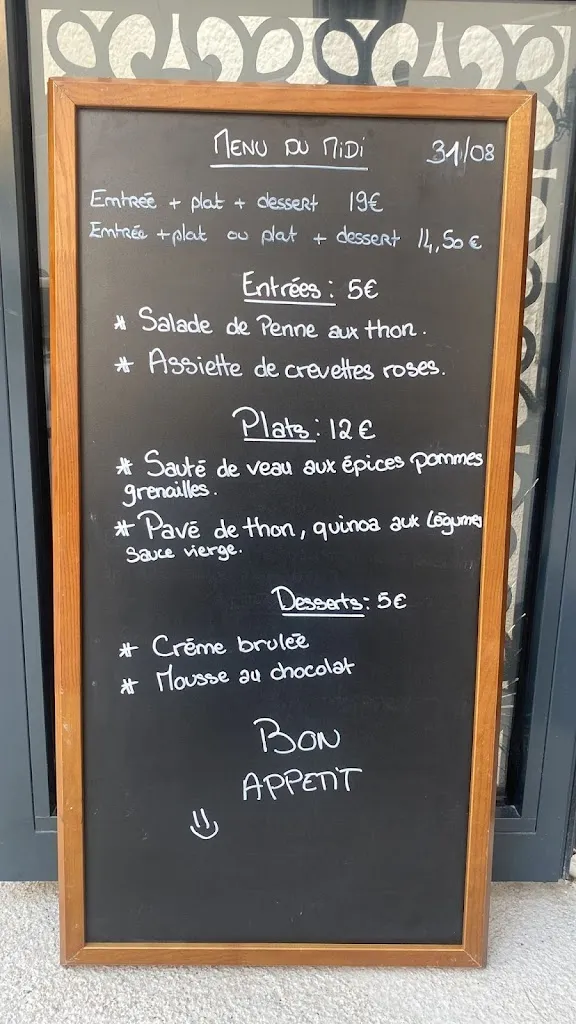 MENU DU MiDi 31/08
Entrée + plat + dessert 19€
Entrée + plat ou plat + dessert 14,50€
Entrées : 5€
* Salade de Penne aux thon.
* Assiette de crevettes roses.
Plats : 12€
* Sauté de veau aux épices pommes
grenailles.
* Pavé de thon, quinoa aux légumes
sauce vierge.
Desserts : 5€
* Créme brulée
* Mousse au chocolat
BON
APPETIT